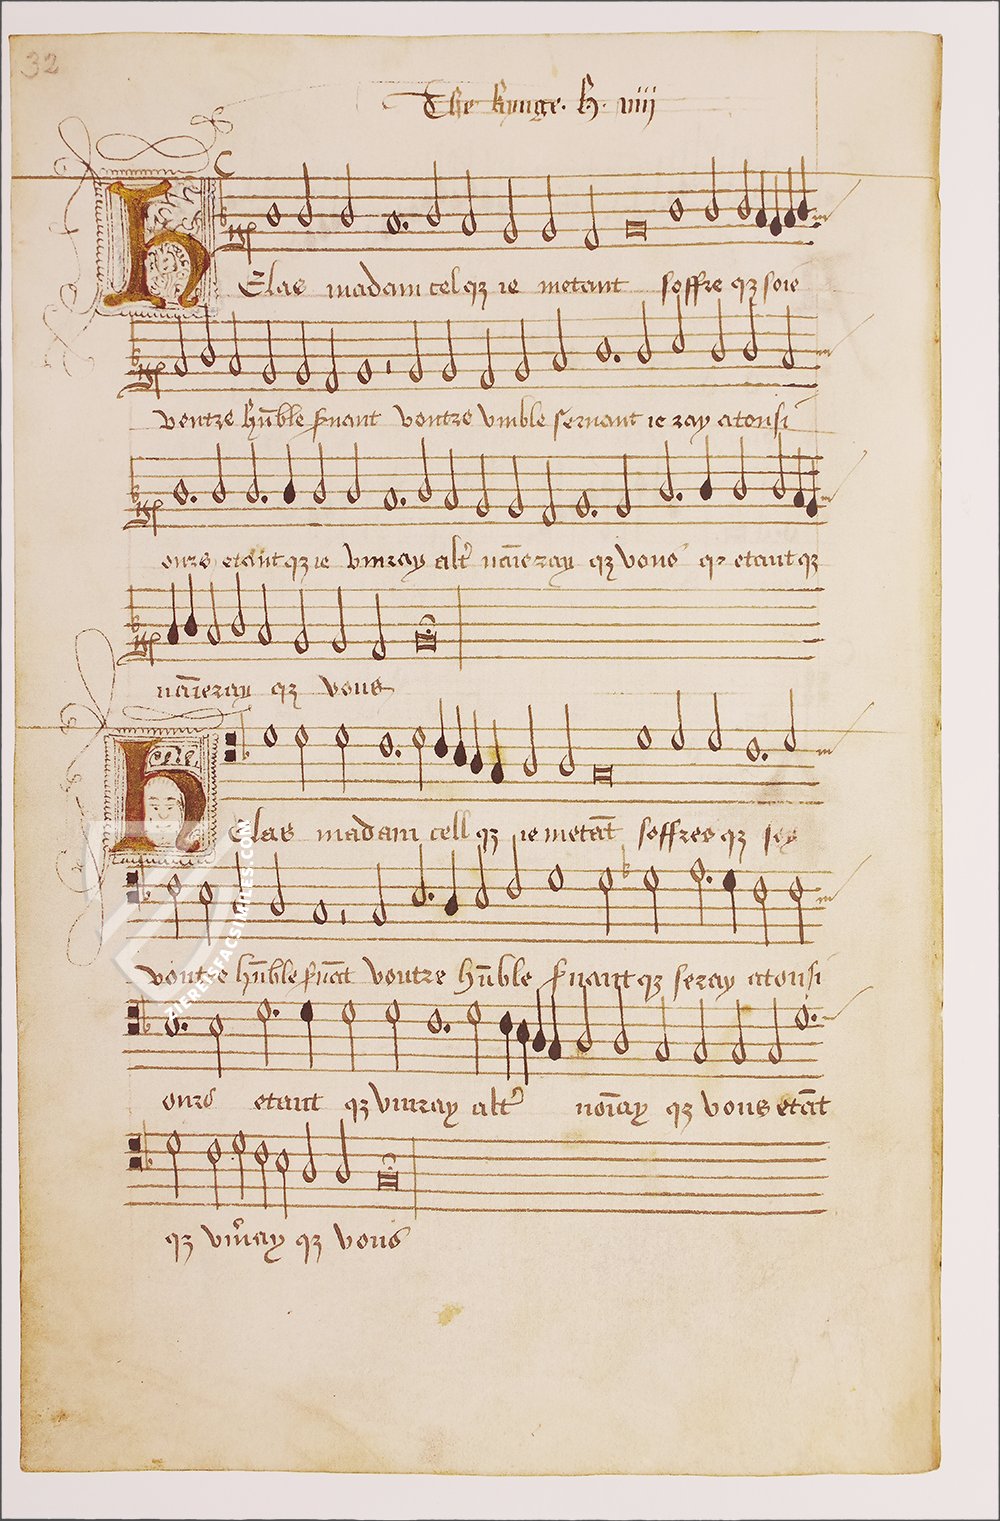 32
The kynge. h. viij
Helas madam cel qȝ ie metant soffre qȝ soie
voutre hūble s̄uant voutre vmble seruant ie zay atousi
ours etant qȝ ie vinray alt' nāiezay qȝ vous qȝ etant qȝ
nāiezay qȝ vous
Helas madam cell qȝ ie metāt soffres qȝ soy
voutre hūble s̄uāt voutre hūble s̄uant qȝ sezay atousi
ours etant qȝ vinray alt' qȝ vous etāt
qȝ qȝ vous
ZIEREIS FACSIMILES.COM